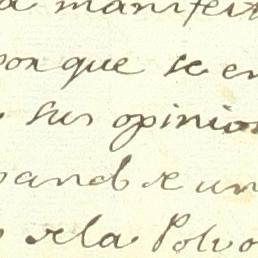 a manifest
por que se en
sus opinion
pando se un
de la Polvo